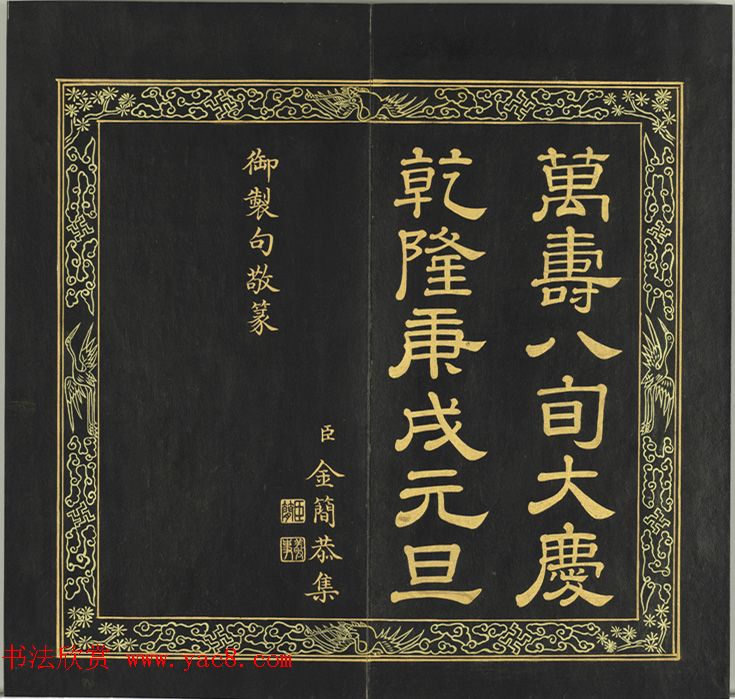 萬壽八旬大慶
乾隆庚戌元旦
臣金簡恭集
御製句敬篆
书法欣赏 www.yac8.com